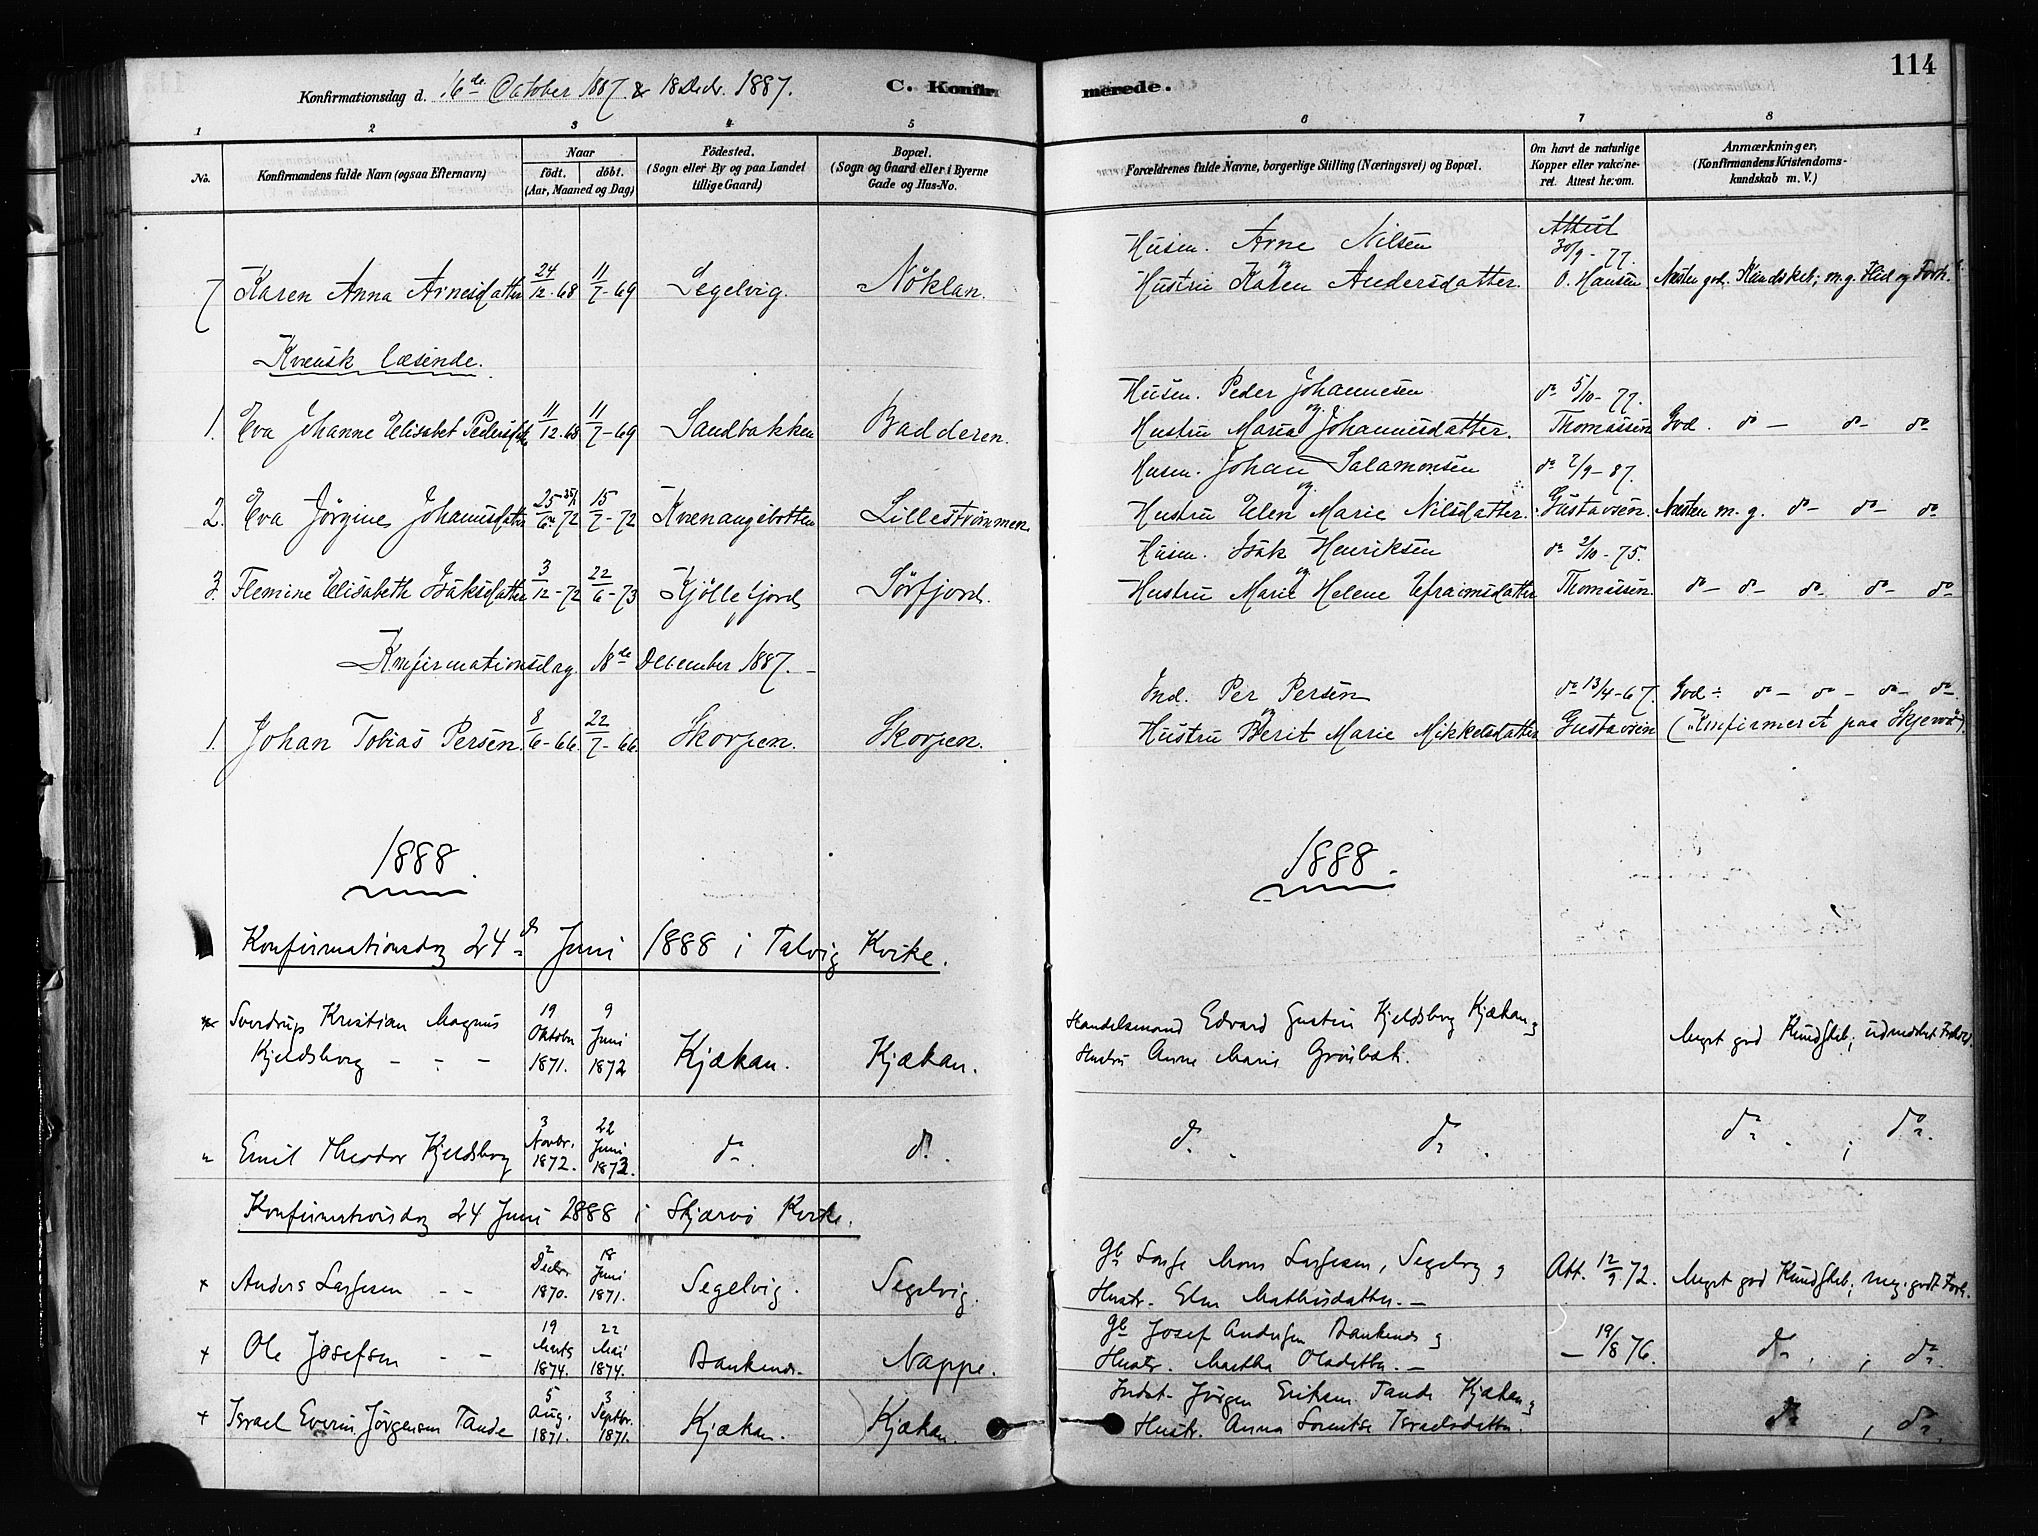 114
Konfirmationsdag d. 16de October 1887 & 18 Decbr. 1887.
C. Konfirmerede.
1 2 3 4 5 6 7 8
No.
Konfirmandens fulde Navn (ogsaa Efternavn)
Naar
födt. döbt.
(Aar, Maaned og Dag)
Födested.
(Sogn eller By og paa Landet
tillige Gaard)
Bopæl.
(Sogn og Gaard eller i Byerne
Gade og Hus-No.
Forældrenes fulde Navne, borgerlige Stilling (Næringsvei) og Bopæl.
Om havt de naturlige
Kopper eller vakcine-
ret. Attest herom.
Anmærkninger.
(Konfirmandens Kristendoms-
kundskab m. V.)
Husm. Arne Nilsen Attest
og 30/9-77.
7 Karen Anna Arnesdatter 24/12-68 11/7-69 Segelvig. Nöklan. Hustru Karen Andersdatter. O. Hansen Næsten god Kundskab; m. g. Flid og Forh.
Kvænsk læsende.
Husm. Peder Johannesen do 5/10-77.
og
1. Eva Johanne Elisabet Pedersdtr 11/12-68 11/7-69 Sandbakken Badderen. Hustru Maria Johannesdatter. Thomassen God. do - do - do
Husm. Johan Salamonsen do 2/9-87.
og
2. Eva Jörgine Johannesdatter 25/6-72 15/7-72 Kvenangsbotten Lilleströmmen Hustru Elen Marie Nilsdatter. Gustavsen. Næsten m. g. do - do - do
Husm. Isak Henriksen do 2/10-75.
og
3. Flemine Elisabeth Isaksdatter 3/12-72 22/6-73 Kjöllefjord Sörfjord. Hustru Marie Helene Efraimsdatter Thomassen. do - do - do - do - do
Konfirmationsdag 18de December 1887. -
Ind. Per Persen do 13/4-67. God - do - do - do - do
og
1. Johan Tobias Persen. 8/6-66. 22/7-66 Skorpen. Skorpen. Hustru Berit Marie Mikkelsdatter Gustavsen (Konfirmeret paa Skjervö).
1888. 1888.
Konfirmationsdag 24de Juni 1888 i Talvig Kirke.
Sverdrup Kristian Magnus Kjeldsborg - - - 19 Oktober 1871. 9 Juni 1872 Kjækan. Kjækan. Handelsmand Edvard Gustin Kjeldsborg Kjækan og
Hustru Anne Marie Grönbæk. Meget god Kundskab; udmærket Forhold.
" Emil Theodor Kjeldsborg 3 Novbr. 1872. 22 Juni 1873. do. do. do. do. do. ; do.
Konfirmationsdag 24 Juni 1888 i Skjærvö Kirke.
+ Anders Larsen - - 2 Decbr. 1870. 18 Juni 1871. Segelvig. Segelvig. Gb Mons Segelvig og
Hustr. Elen Mathisdatter. - Att. 12/9 72. Meget god Kundskab; meg. godt Forh.
+ Ole Josefsen - - 19 Marts 1874. 22 Mai 1874. Bankenes. Nappe. Gb Josef Andersen Bankenes og
Hustr. Martha Oladatter. - - 19/8 76. do. ; do.
+ Israel Everin Jörgensen Tande 5 Aug. 1871. 3 Septbr. 1871. Kjækan. Kjækan. Indst. Jörgen Eriksen Tande Kjækan og
Hustr. Anna Israelsdatter. do , do.